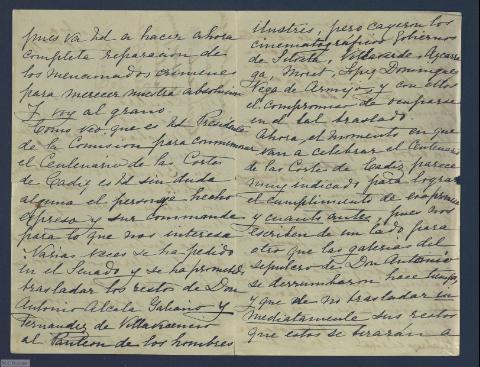 pues va Ud a hacer ahora
completa reparacion de
los mencionados crimenes
para merecer nuestra absolucion
Y voy al grano.
Como veo, que es Ud Presidente
de la Comision para conmemorar
el Centenario de las Cortes
de Cadiz es Ud sin duda
alguna el personaje hecho
espreso y sur commande
para lo que nos interesa
Varias veces se ha pedido
en el Senado y se ha prometido,
trasladar los restos de Don
Antonio Alcala Galiano y
Fernandez de Villavicencio
al Panteon de los hombres
ilustres, pero cayeron los
cinematograficos Gobiernos
de Silvela, Villaverde, Azcarra
ga, Moret, Lopez Dominguez
Vega de Armijo, y con ellos
el compromiso de ocuparse
en el tal traslado.
Ahora, el momento en que
van a celebrar el Centenario
de las Cortes de Cadiz parece
muy indicado para lograr
el cumplimiento de esa promesa
y cuanto antes; pues nos
escriben de un lado, para
otro que las galerias del
sepulcro de Don Antonio
se derrumbaron hace tiempo,
y que de no trasladar in
mediatamente sus restos
que estos se tirarán a